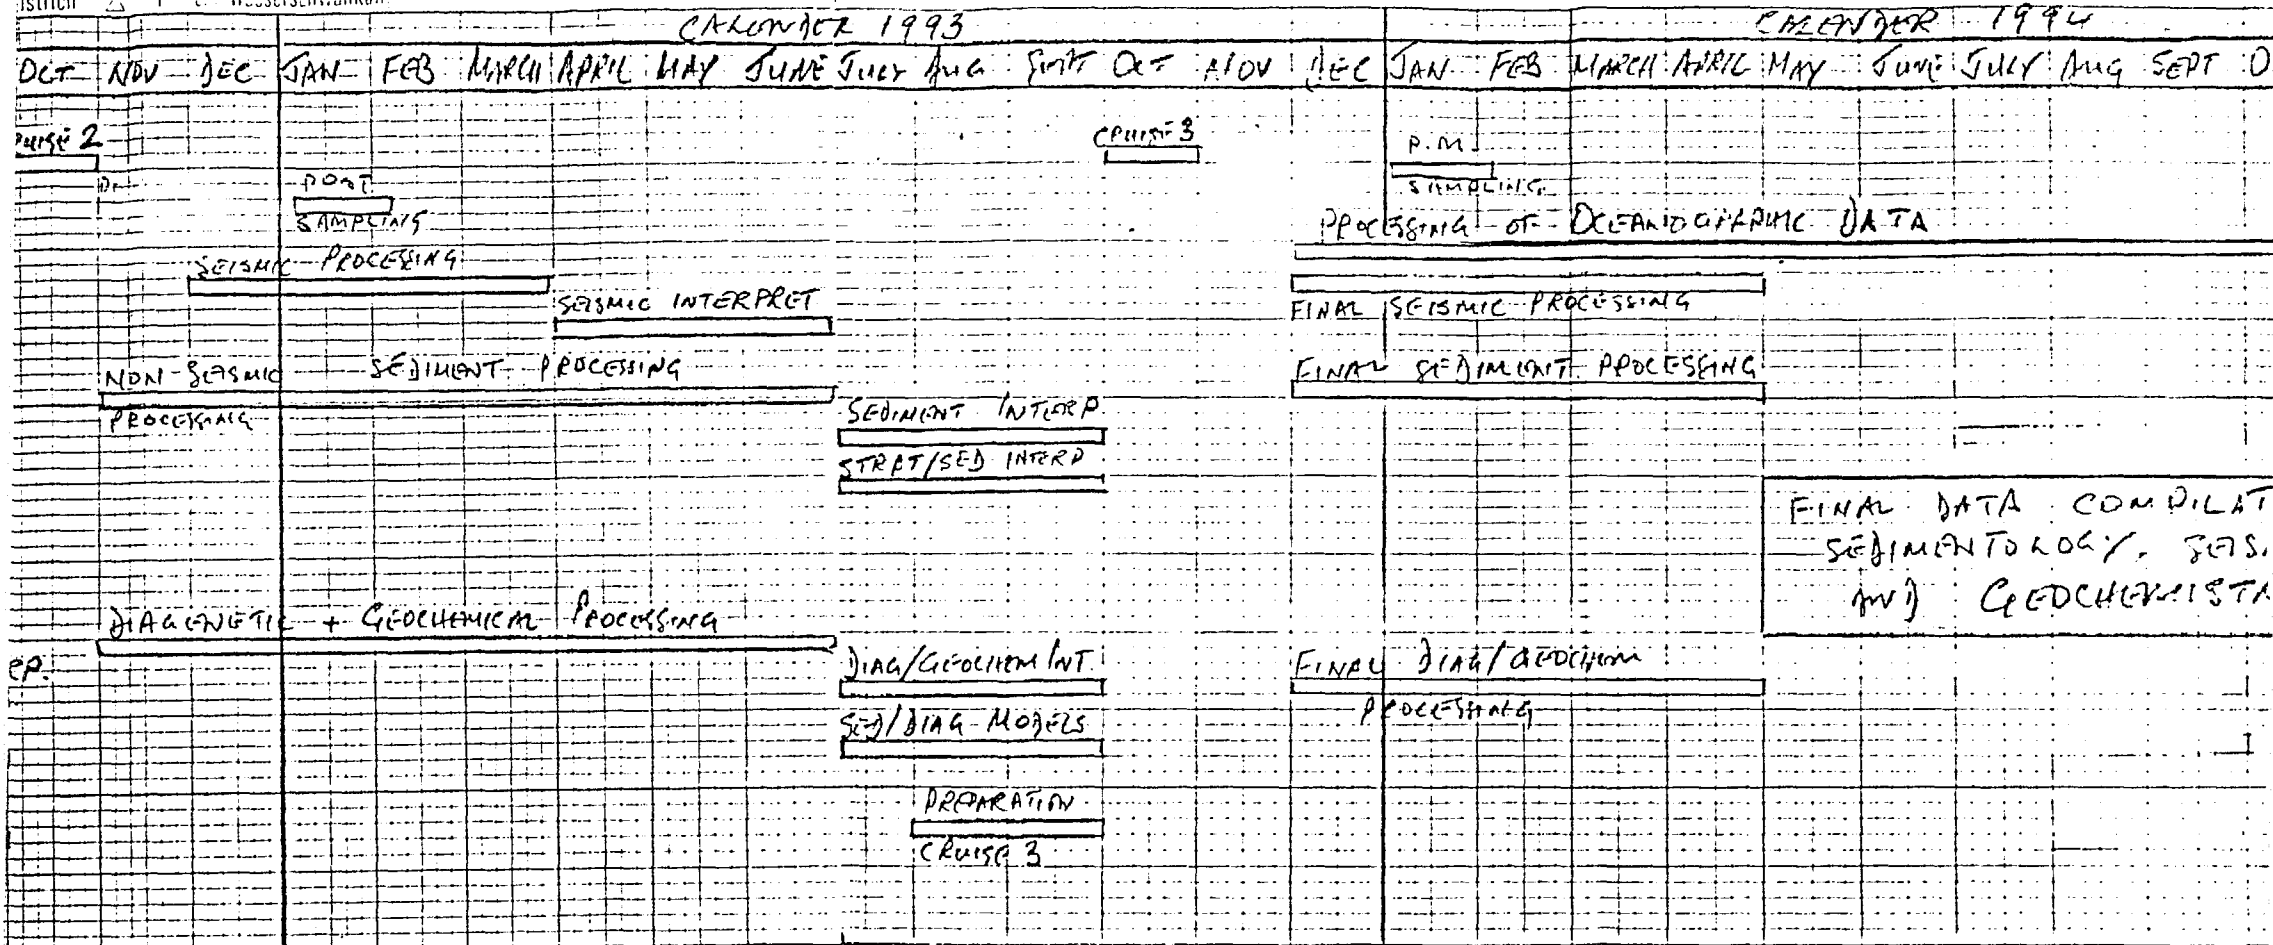 CALENDER 1993 CALENDER 1994
OCT NOV DEC JAN FEB MARCH APRIL MAY JUNE JULY AUG SEPT OCT NOV DEC JAN FEB MARCH APRIL MAY JUNE JULY AUG SEPT O
CRUISE 3
2
P.M.
SAMPLING
POST
SAMPLING
PROCESSING OF OCEANOGRAPHIC DATA
SEISMIC PROCESSING
SEISMIC INTERPRET
FINAL SEISMIC PROCESSING
NON-SEISMIC SEDIMENT PROCESSING
PROCESSING
FINAL SEDIMENT PROCESSING
SEDIMENT INTERP
STRAT/SED INTERP
FINAL DATA COMPILAT
SEDIMENTOLOGY, SEIS.
AND GEOCHEMISTR
DIAGENETIC + GEOCHEMICAL PROCESSING
EP.
DIAG/GEOCHEM INT
FINAL DIAG/GEOCHEM
PROCESSING
SED/DIAG MODELS
PREPARATION
CRUISE 3